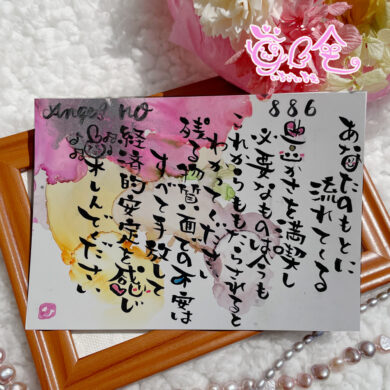 Angel NO
886
あなたのもとに
流れてくる
豊かさを満喫し
必要なものは今も
これからももたらされると
わかってください
残る物質面での不安は
すべて手放して
経済的安定を感じ
楽しんでください